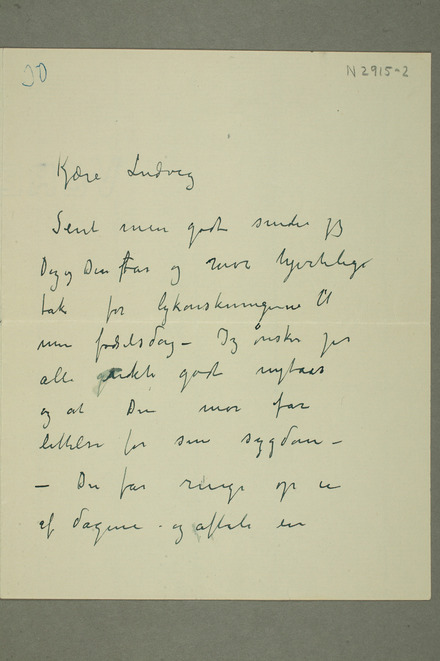 30
N 2915-2
Kjære Ludvig
Sent men godt sender jeg
Dig og Din far og mor hjertelige
tak for lykønskningerne til
min fødselsdag – Jeg ønsker jer
alle godt nytaar
og at Din mor faar
lettelse for sin sygdom –
– Du faar ringe op en
af dagene og aftale en